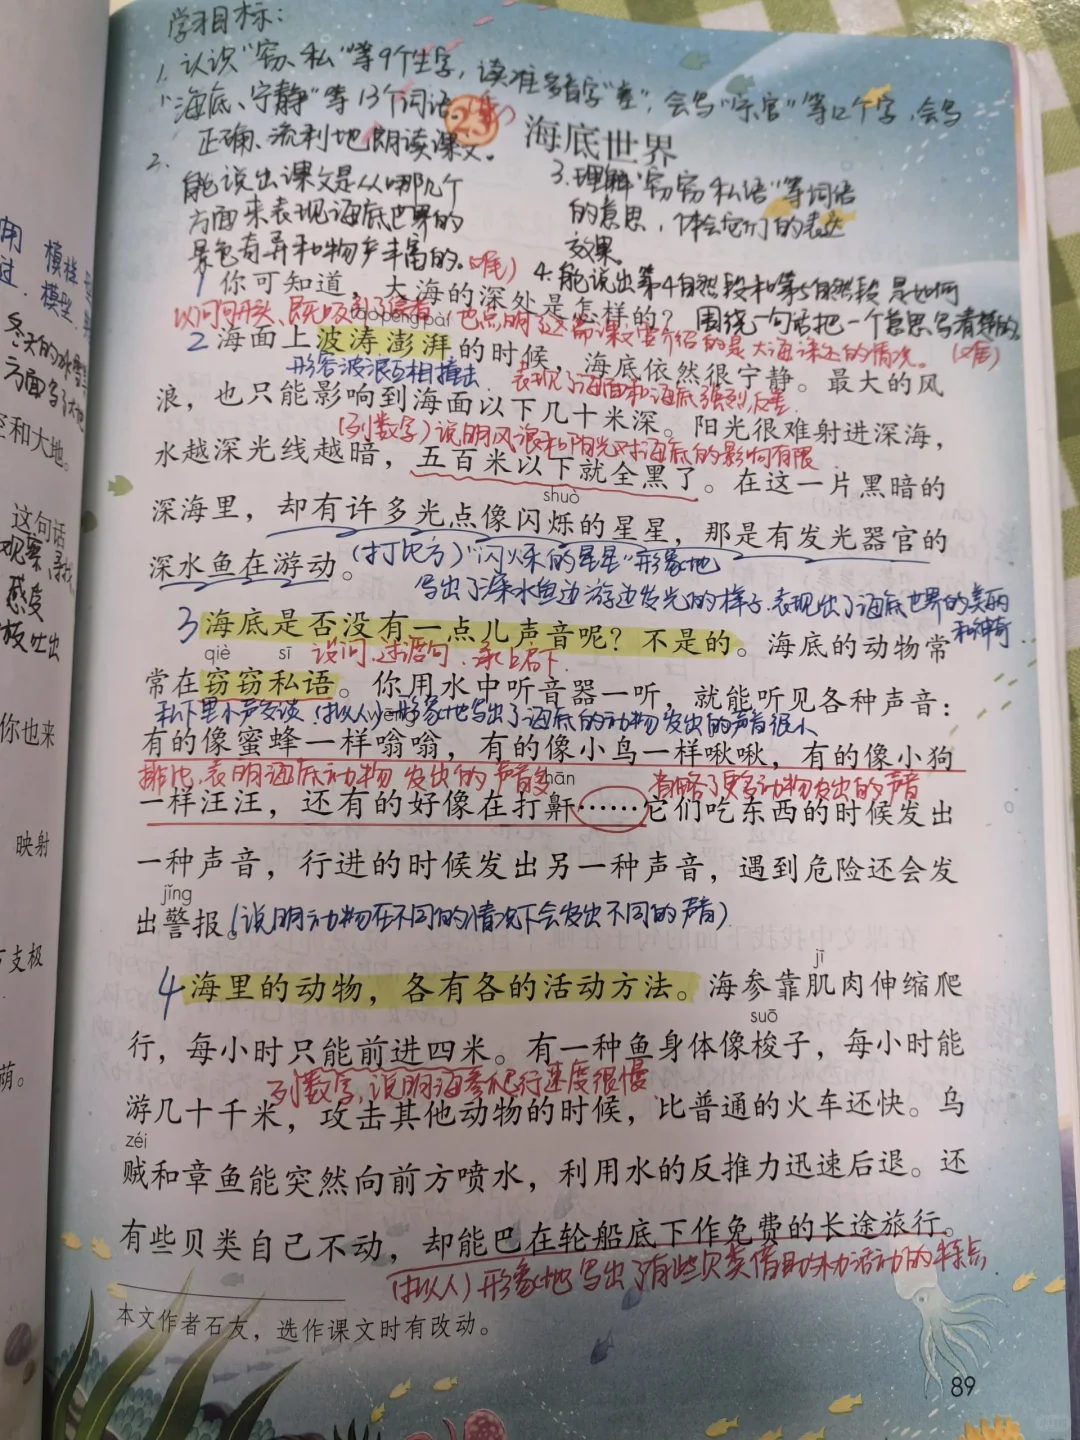 学习目标：
1. 认识“窃、私”等9个生字，读准多音字“差”，会写“宁、官”等12个字，会写
“海底、宁静”等13个词语。
23 海底世界
2. 正确、流利地朗读课文。
能说出课文是从哪几个
方面来表现海底世界的
景色奇异和物产丰富的。
3.理解“窃窃私语”等词语
的意思，体会它们的表达
效果。
4.能说出第4自然段和第5自然段是如何
围绕一句话把一个意思写清楚的。
（难）
1 你可知道，大海的深处是怎样的？
以问句开头、既吸引了读者，也点明了这篇课文要介绍的是大海深处的情况。
tāo péng pài
2 海面上波涛澎湃的时候，海底依然很宁静。最大的风
形容波浪互相撞击
表现了海面和海底强烈反差
浪，也只能影响到海面以下几十米深。阳光很难射进深海，
（列数字）说明风浪和阳光对海底的影响有限
水越深光线越暗，五百米以下就全黑了。在这一片黑暗的
shuò
深海里，却有许多光点像闪烁的星星，那是有发光器官的
深水鱼在游动。
（打比方）“闪烁的星星”形象地
写出了深水鱼边游边发光的样子.表现出了海底世界的美丽
和神奇
3 海底是否没有一点儿声音呢？不是的。海底的动物常
qiè sī
设问.过渡句.承上启下.
常在窃窃私语。你用水中听音器一听，就能听见各种声音：
私下里小声交谈（拟人）形象地写出了海底的动物发出的声音很小
wēng
有的像蜜蜂一样嗡嗡，有的像小鸟一样啾啾，有的像小狗
排比.表明海底动物发出的声音多
hān
省略了更多动物发出的声音
一样汪汪，还有的好像在打鼾……它们吃东西的时候发出
一种声音，行进的时候发出另一种声音，遇到危险还会发
jǐng
出警报。
（说明动物在不同的情况下会发出不同的声音）
jī
4 海里的动物，各有各的活动方法。海参靠肌肉伸缩爬
suō
行，每小时只能前进四米。有一种鱼身体像梭子，每小时能
列数字，说明海参爬行速度很慢
游几十千米，攻击其他动物的时候，比普通的火车还快。乌
zéi
贼和章鱼能突然向前方喷水，利用水的反推力迅速后退。还
有些贝类自己不动，却能巴在轮船底下作免费的长途旅行。
（拟人）形象地写出了有些贝类借助外力活动的特点
本文作者石友，选作课文时有改动。
89
用
过.
模样
模型.
方面写了大地
空和大地。
这句话
观察、寻找
感受
你也来
映射
支极
萌。